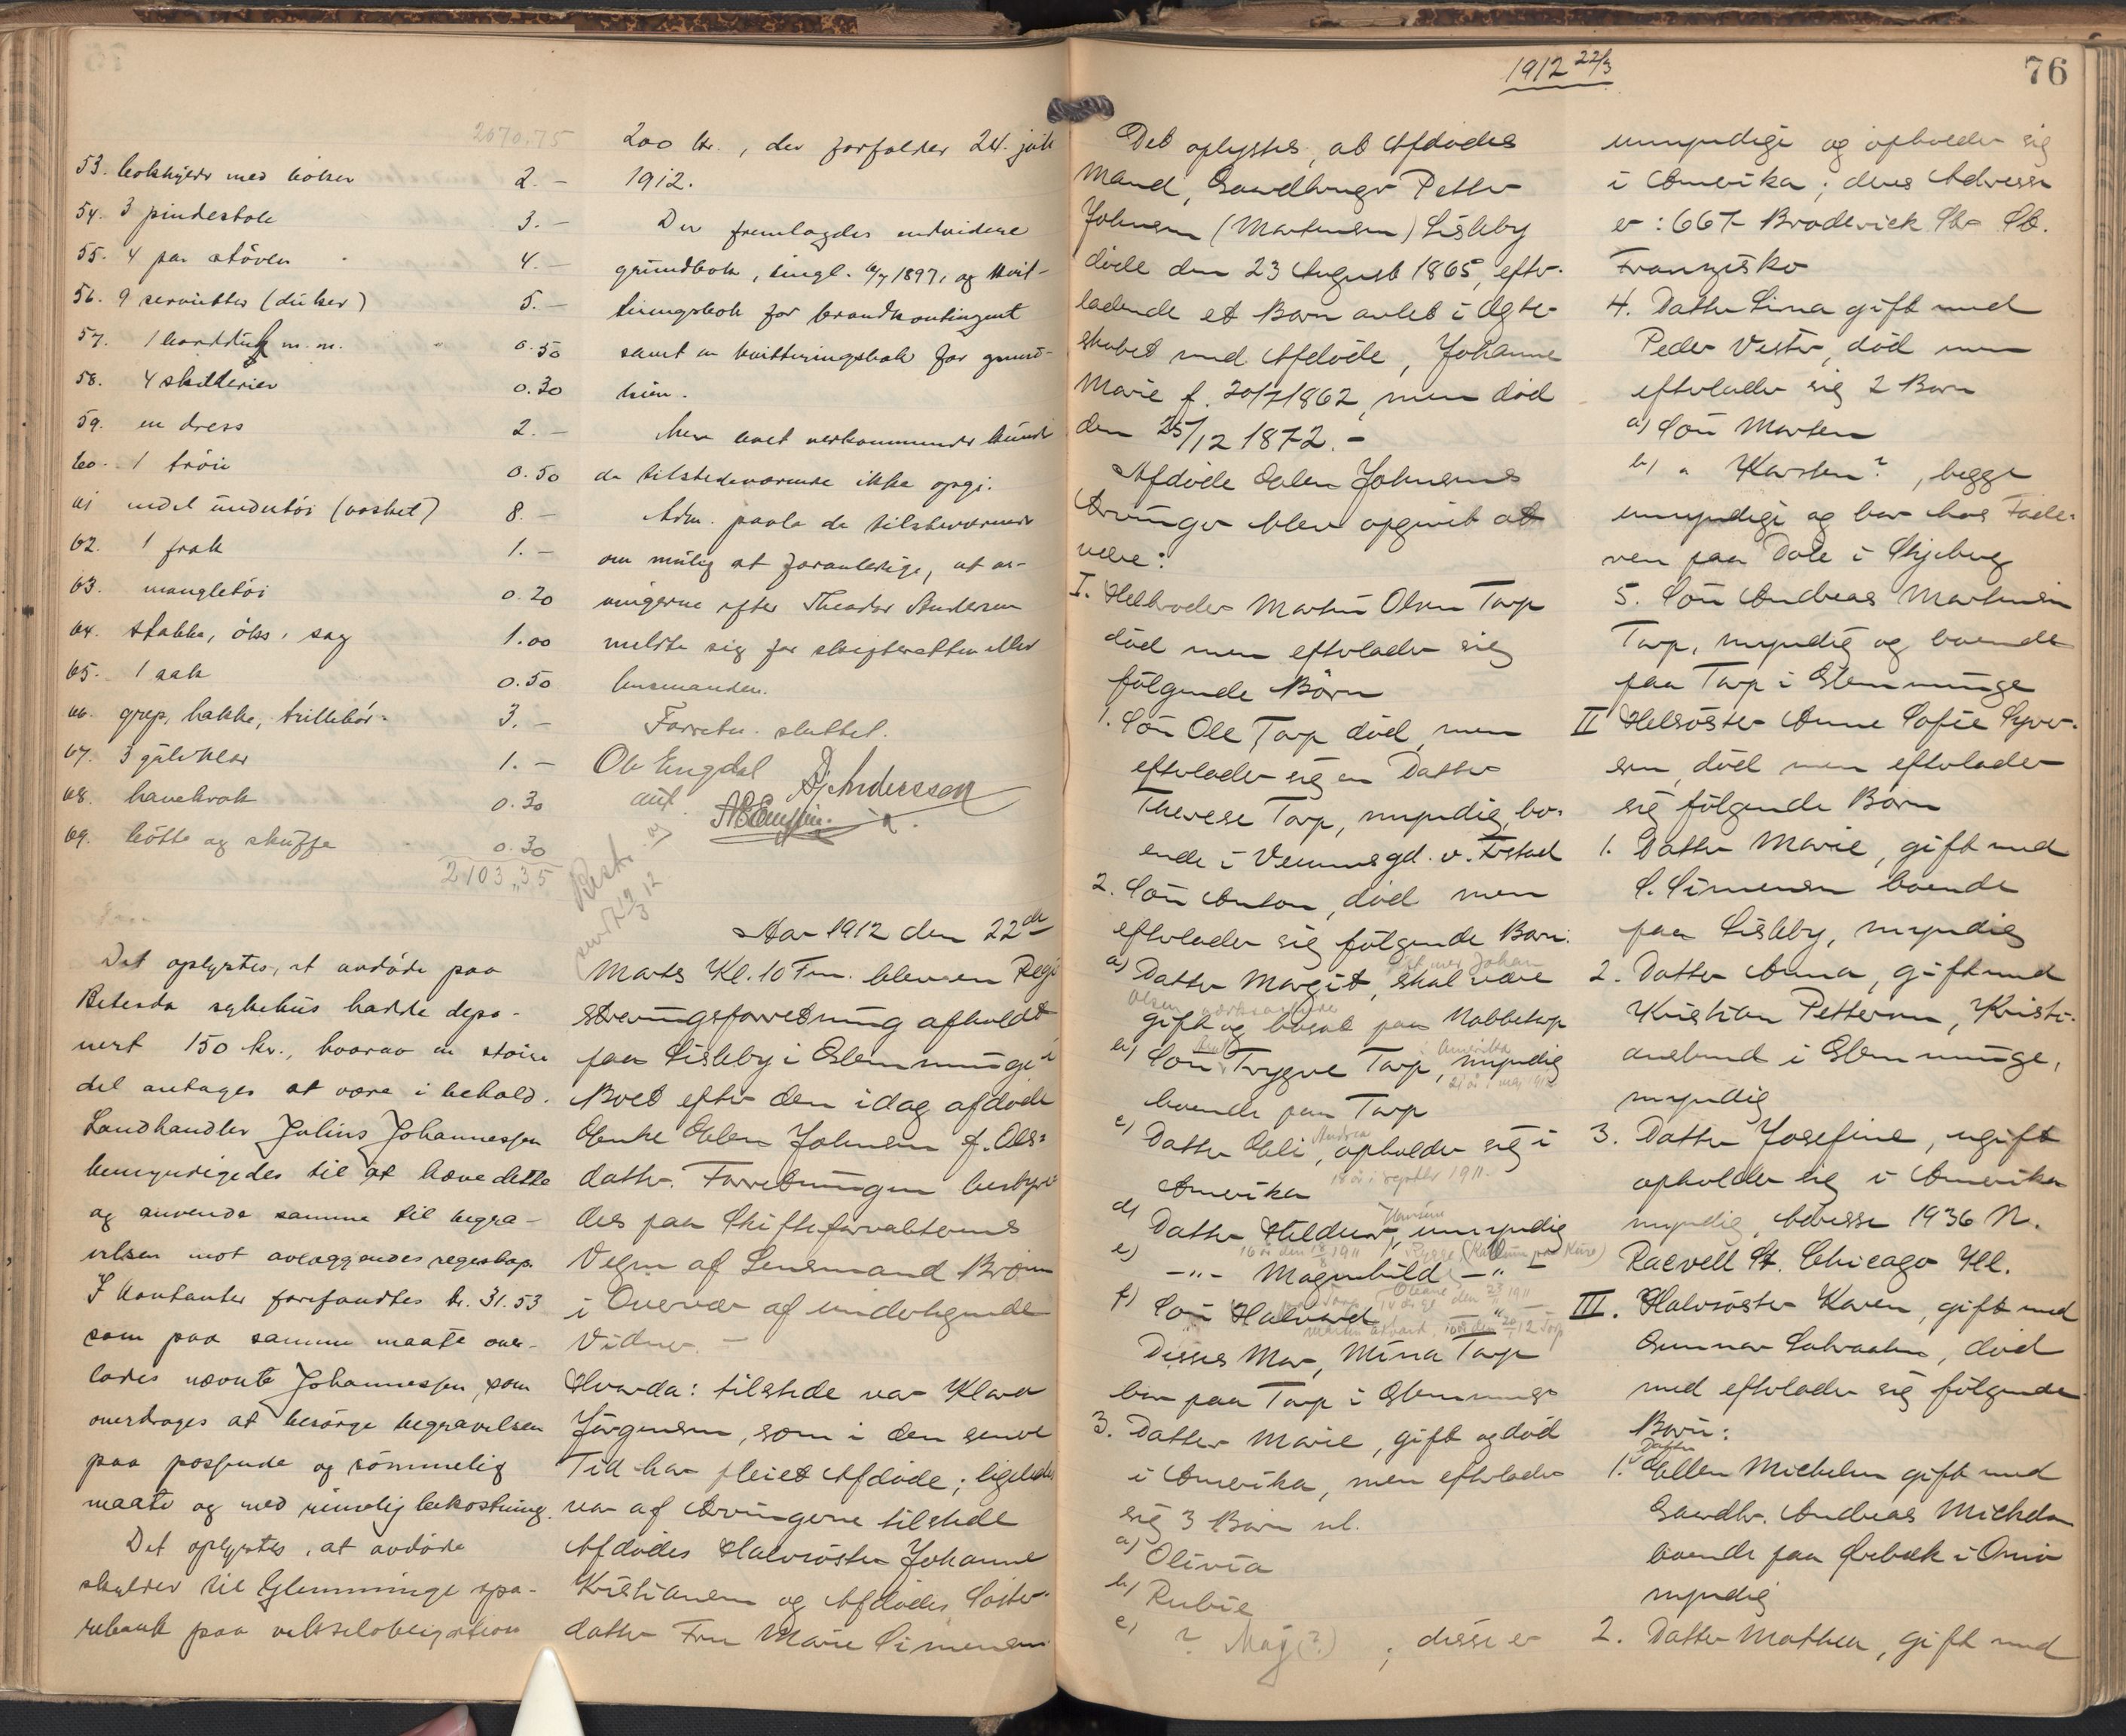 2070.75
53. bokhylde med bøker 2.-
54. 3 pindestole 3.-
55. 4 par støvler 4.-
56. 9 servietter (duker) 5.-
57. 1 borddug m.m. 0.50
58. 4 skilderier 0.30
59. en dress 2.-
60. 1 trøie 0.50
61 endel undertøi (vasket) 8.-
62. 1 frak 1.-
63. mangletøi 0.20
64. stakke, øks, sag 1.00
65. 1 sak 0.50
66. grep, hakke, trillebør 3.-
67. 3 gulvklær 1.-
68. havekrak 0.30
69. bøtte og skuffe 0.30
2103.35
Det oplystes, at avdøde paa
Betesda sykehus hadde depo-
nert 150 kr., hvorav en større
del antages at være i behold.
Landhandler Julius Johannessen
bemyndigedes til at hæve dette
og anvende samme til begra-
velsen mot avlæggendes regnskap.
I kontanter forefandtes kr. 31.53
som paa samme maate over-
lodes nævnte Johannessen, som
overdroges at besørge begravelsen
paa passende og sømmelig
maate og med rimelig bekostning.
Det oplystes, at avdøde
skylder til Glemminge spa-
rebank paa vekselobligation
200 kr., der forfalder 24. juli
1912.
Der fremlagdes endvidere
grundbok, tingl. 6/7 1897, og kvit-
teringsbok for brandkontingent
samt en kvitteringsbok for grund-
leien.
Mere boet vedkommende kunde
de tilstedeværende ikke opgi.
Adm. paala de tilstedeværende
om mulig at foranledige, at ar-
vingerne efter Theodor Andersen
meldte sig for skifteretten eller
lensmanden.
Forretn. sluttet.
Ole Engdal
Andersson
Aar 1912 den 22de
Marts Kl. 10 Fm. blev en Regi
streringsforretning afholdt
paa Lisleby i Glemminge i
Boet efter den idag afdøde
Enke Elen Johnsen f. Ols-
datter. Forretningen bestyre-
des paa Skifteforvalterens
Vegne af Lensmand Brøm
i Overvær af undertegnede
Vidner. -
Hvorda: tilstede var Klara
Jørgensen, som i den senere
Tid har pleiet Afdøde; ligeledes
var af Arvingerne tilstede
Afdødes Halvsøster Johanne
Kristiansen og Afdødes Søster-
datter Fru Marie Simensen
1912 22/3
76
Det oplystes, at Afdødes
Mand, Gaardbruger Petter
Johnsen (Martinsen) Lisleby
døde den 23 August 1865, efter-
ladende et Barn avlet i Ægte-
skabet med Afdøde, Johanne
Marie f. 20/7 1862, men død
den 25/12 1872. -
Afdøde Elen Johnsens
Arvinger blev opgivet at
være:
I. Helbroder Martin Olsen Torp
død men efterlader sig
følgende Børn
1. Søn Ole Torp død, men
efterlader sig en Datter
Therese Torp, myndig, bo-
ende i Vennesgd. v. Frstad
2. Søn Anton, død men
efterlader sig følgende Børn:
a) Datter Margit, skal være
gift og bosat paa Nabbetorp
b) Søn Trygve Torp, myndig
boende paa Torp
c) Datter Eli, opholder sig i
18 år i septbr 1911.
Amerika
d) Datter Hildur, umyndig
e) -"- Magnhild -"-
f) Søn Halvard -"-
Disses Mor, Mina Torp
bor paa Torp i Glemminge
3. Datter Marie, gift og død
i Amerika, men efterlader
sig 3 Børn nl.
a) Olivia
b) Rubie
c) ? Maj (?) ; disse er
umyndige og opholder sig
i Amerika; deres Adresse
er: 667 Broderick Str St.
Franzisko
4. Datter Lina gift med
Peder Vester, død men
efterlader sig 2 Børn
a) Søn Morten
b) " Karsten?, begge
umyndige og bor hos Fade-
ren paa Dale i Skjeberg
5. Søn Andreas Martinsen
Torp, myndig og boende
paa Torp i Glemminge
II Helsøster Anne Sofie Syver-
sen, død men efterlader
sig følgende Børn
1. Datter Marie, gift med
S. Simensen boende
paa Lisleby, myndig
2. Datter Anna, gift med
Kristian Pettersen, Kristi-
anslund i Glemminge,
myndig
3. Datter Josefine, ugift
opholder sig i Amerika
myndig, Adresse 1936 N.
Racvell St. Chicago Ill.
III. Halvsøster Karen, gift med
Gunnar Labraaten, død
med efterlader sig følgende
Børn:
1. Datter Ellen Michelsen gift med
Gaardbr. Andreas Michelsen
boende paa Ørebæk i Onsø
myndig
2. Datter Mathea, gift med